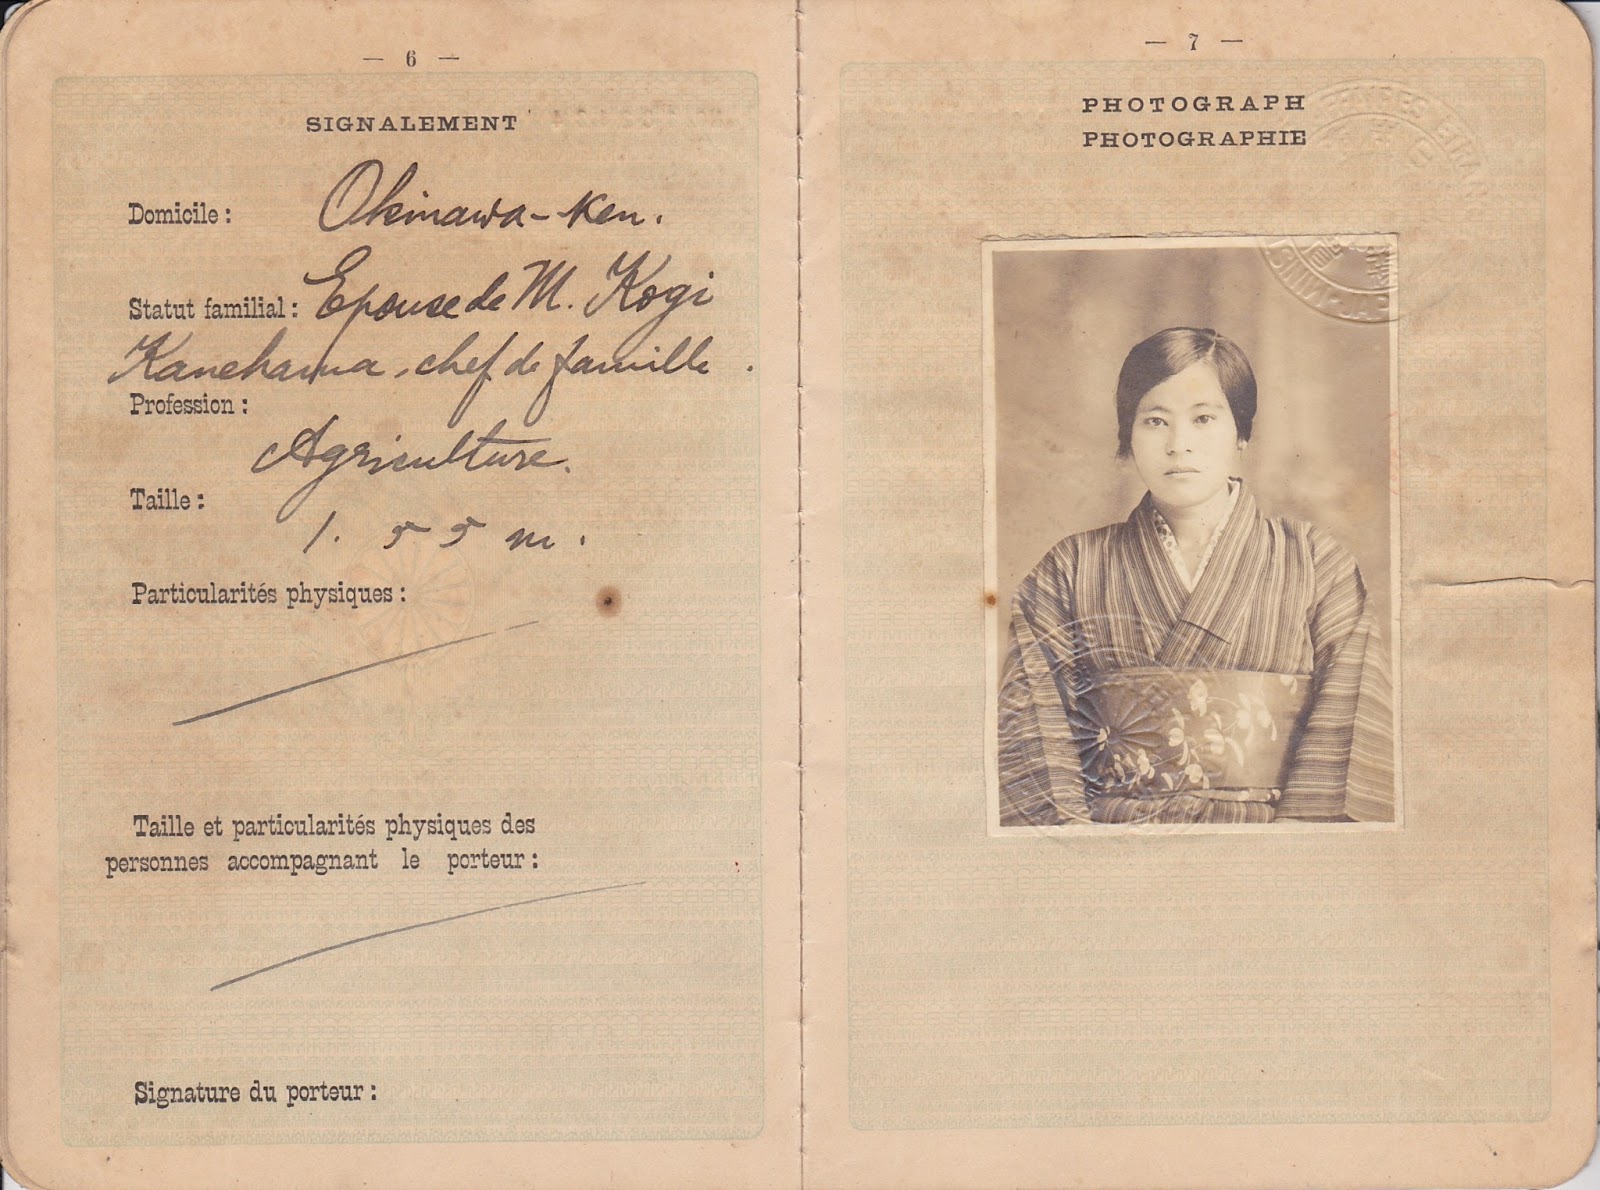 — 6 —
SIGNALEMENT
Domicile: Okinawa-Ken.
Statut familial: Epouse de M. Kogi
Kanehama, chef de famille.
Profession:
Agriculture.
Taille:
1.55 m.
Particularités physiques:
Taille et particularités physiques des
personnes accompagnant le porteur:
Signature du porteur:
— 7 —
PHOTOGRAPH
PHOTOGRAPHIE